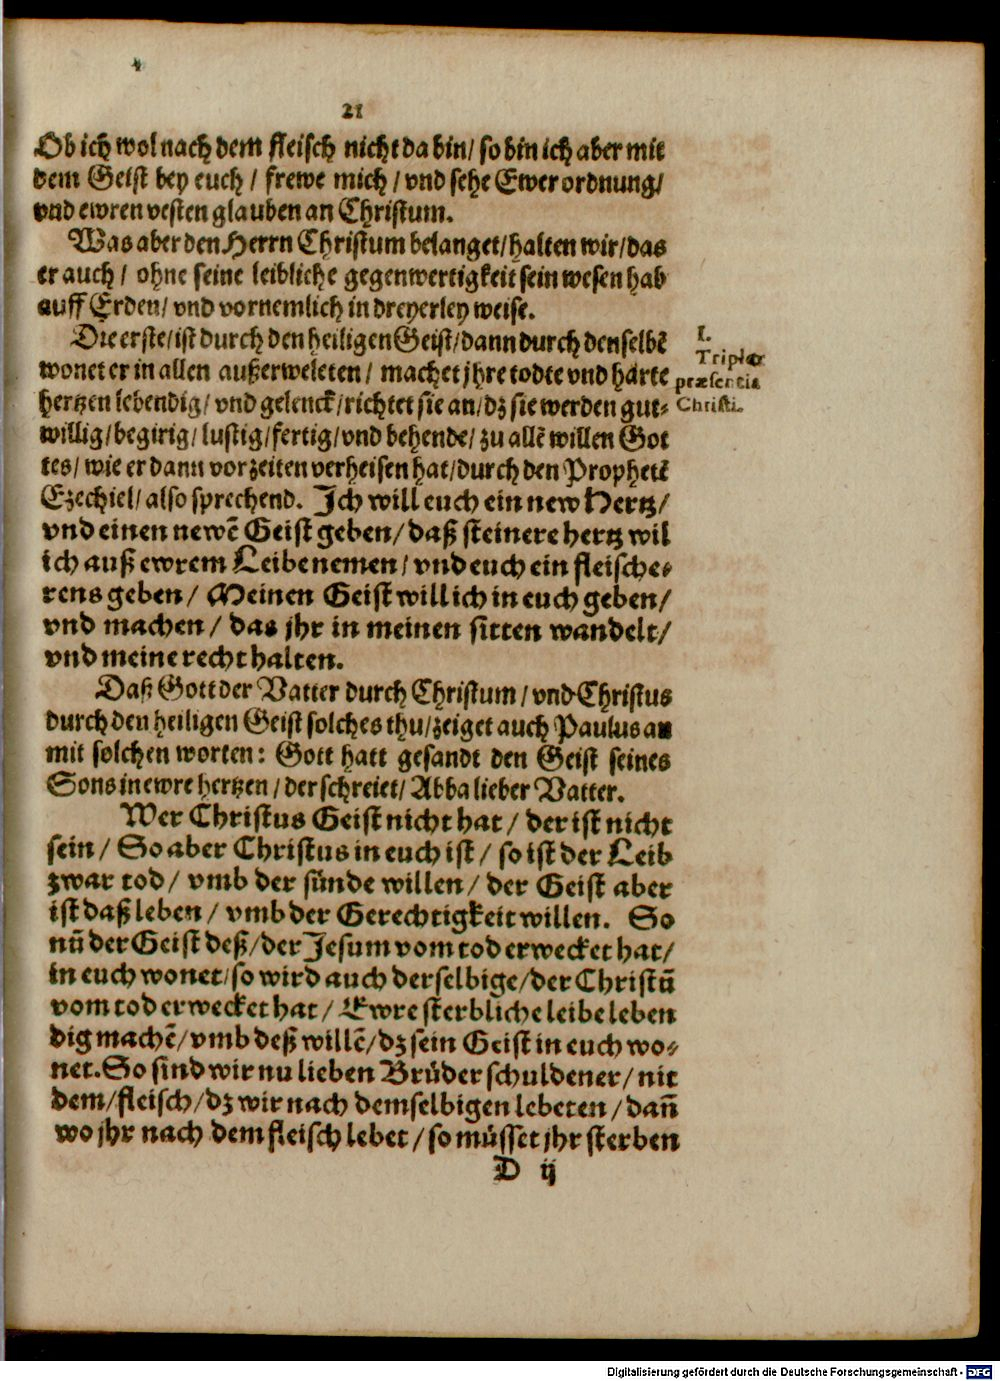 21
Ob ich wol nach dem fleisch nicht da bin/ so bin ich aber mit
dem Geist bey euch / frewe mich / vnd sehe Ewer ordnung/
vnd ewren vesten glauben an Christum.
Was aber den Herrn Christum belanget/ halten wir/ das
er auch / ohne seine leibliche gegenwertigkeit sein wesen hab
auff Erden/ vnd vornemlich in dreyerley weise.
Die erste/ ist durch den heiligen Geist/ dann durch denselbẽ
wonet er in allen außerweleten / machet jhre todte vnd harte
hertzen lebendig/ vnd gelenck/ richtet sie an/ dz sie werden gut⸗
willig/ begirig/ lustig/ fertig/ vnd behende/ zu allẽ willen Got
tes/ wie er dann vorzeiten verheisen hat/ durch den Prophetẽ
Ezechiel/ also sprechend. Ich will euch ein new Hertz/
vnd einen newẽ Geist geben/ daß steinere hertz wil
ich auß ewrem Leibe nemen/ vnd euch ein fleische⸗
rens geben/ Meinen Geist will ich in euch geben/
vnd machen / das jhr in meinen sitten wandelt/
vnd meine recht halten.
I.
Triplex
præsentia
Christi.
Daß Gott der Vatter durch Christum / vnd Christus
durch den heiligen Geist solches thu/ zeiget auch Paulus an
mit solchen worten: Gott hatt gesandt den Geist seines
Sons in ewre hertzen / der schreiet/ Abba lieber Vatter.
Wer Christus Geist nicht hat / der ist nicht
sein / So aber Christus in euch ist / so ist der Leib
zwar tod / vmb der sünde willen / der Geist aber
ist daß leben / vmb der Gerechtigkeit willen. So
nũ der Geist deß/ der Jesum vom tod erwecket hat/
in euch wonet/ so wird auch derselbige/ der Christũ
vom tod erwecket hat / Ewre sterbliche leibe leben
dig machẽ/ vmb deß willẽ/ dz sein Geist in euch wo⸗
net. So sind wir nu lieben Brüder schuldener/ nit
dem/ fleisch/ dz wir nach demselbigen lebeten / dañ
wo jhr nach dem fleisch lebet / so müsset jhr sterben
D ij
Digitalisierung gefördert durch die Deutsche Forschungsgemeinschaft - DFG